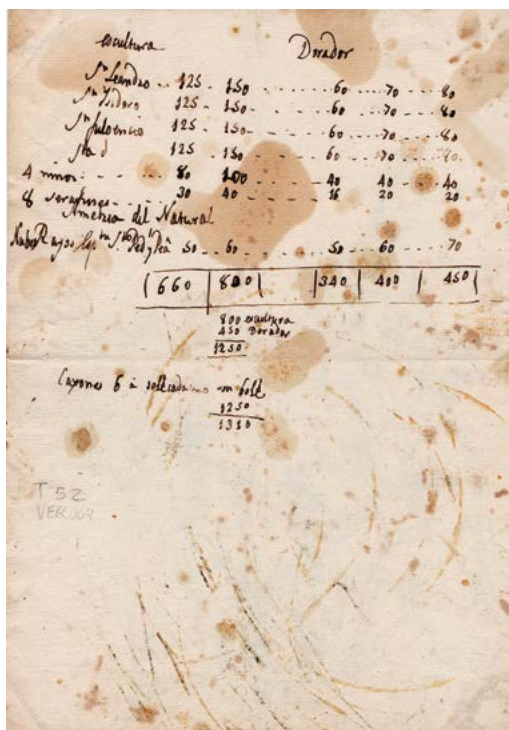 escultura Dorador
Sn Leandro .. 125 - 150 ..... 60 ... 70 ... 80
Sn Ysidoro 125 - 150 ..... 60 ... 70 ... 80
Sn fulgencio 125 - 150 ..... 60 ... 70 ... 80
Sta 125 150 ..... 60 ... 70 ... 80
4 ninos - - - 80 100 - - - 40 40 - 40
8 serafines - - - 30 40 - - - 16 20 20
del Natural
Rayos 50 .. 60 ..... 50 .. 60 ... 70
660 | 800 | 340 | 400 | 450
800 escultura
450 Dorador
1250
Caxones 6 à
1250
1310
T 52